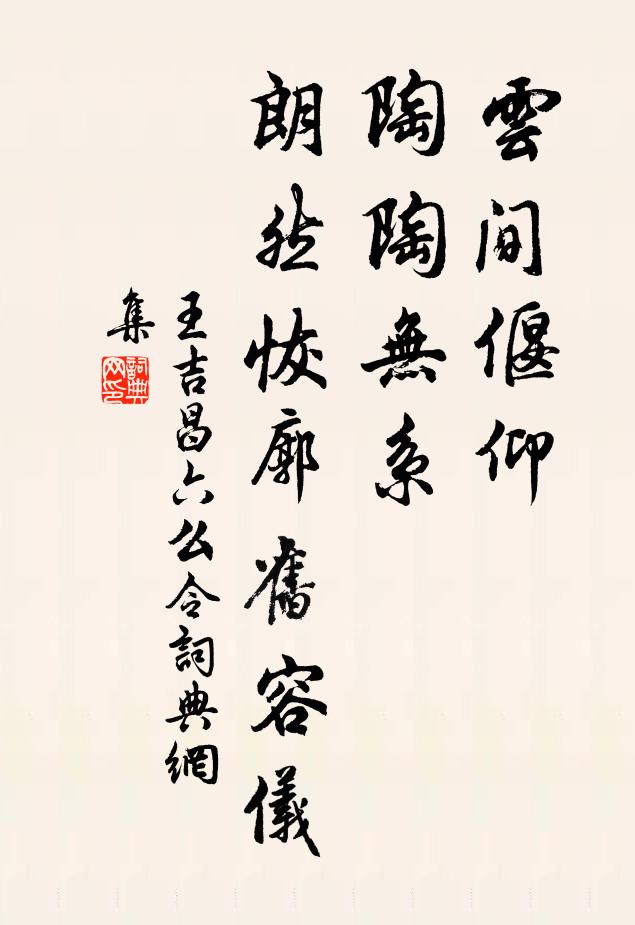 雲間偃仰
陶陶無系
朗然恢廓舊容儀
王吉昌六么令詞典網
集
詞典
网印